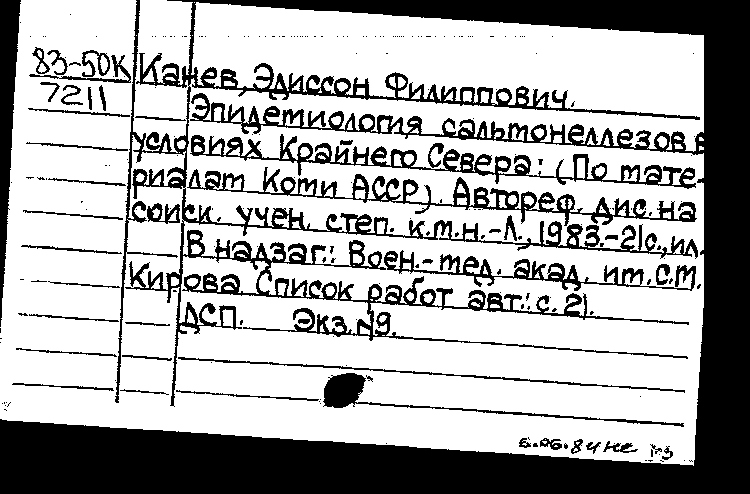 83-50К Канев, Эдиссон Филиппович.
7211
Эпидемиология сальмонеллезов в
условиях Крайнего Севера: (По мате-
риалам Коми АССР). Автореф. дис. на
соиск. учен. степ. к.м.н.-Л., 1983.-21с., ил.
В надзаг.: Воен.-мед. акад. им. С.М.
Кирова Список работ авт.: с. 21.
ДСП. Экз. №9.
6.06.84